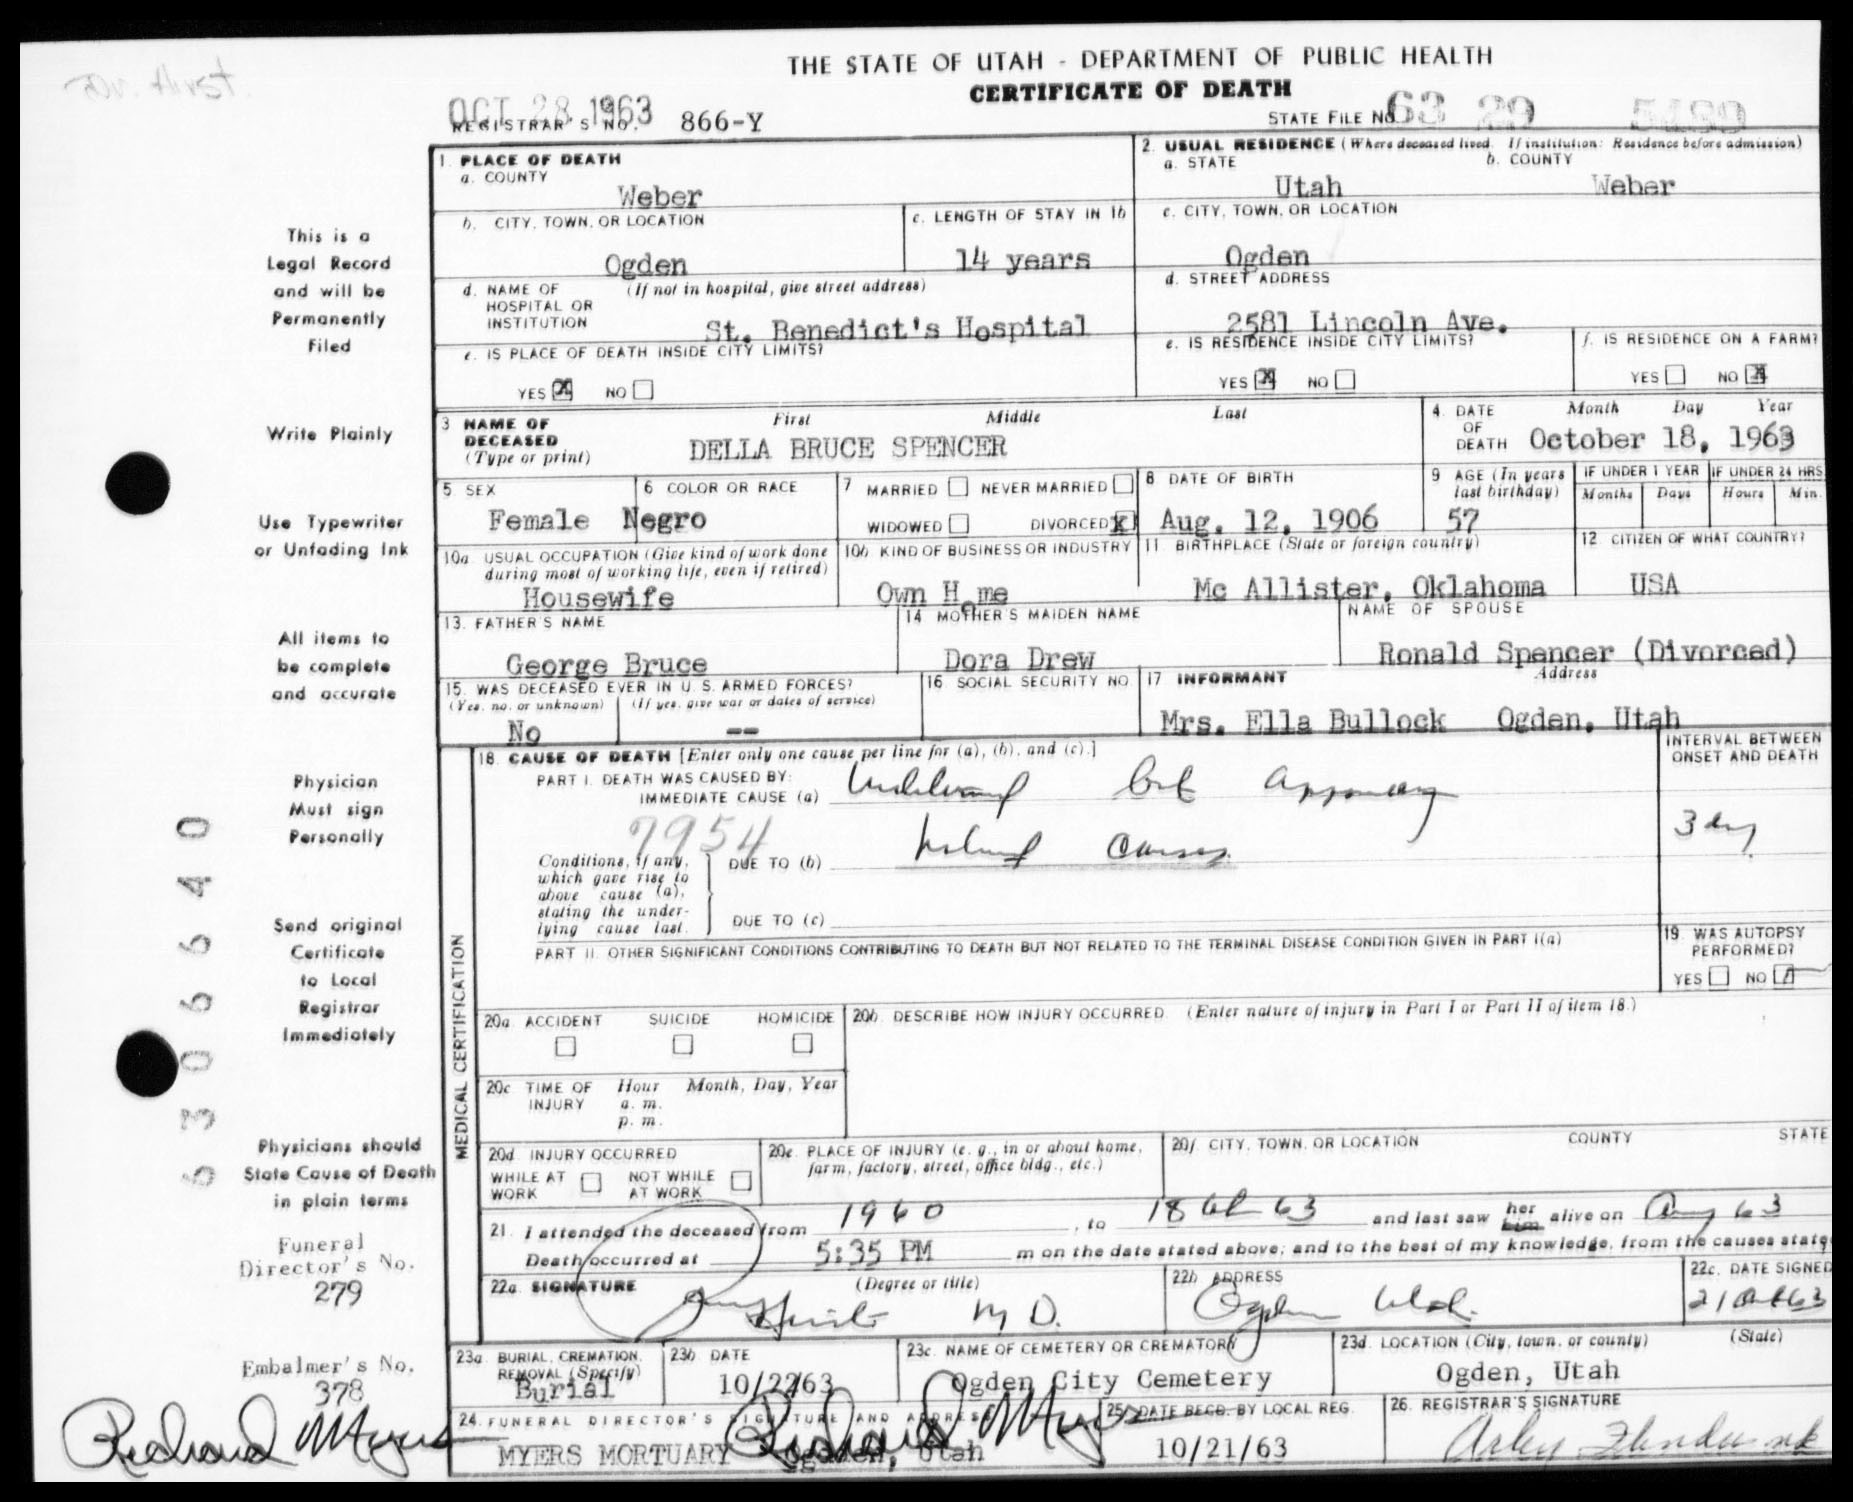 THE STATE OF UTAH - DEPARTMENT OF PUBLIC HEALTH
CERTIFICATE OF DEATH
OCT 28 1963
REGISTRAR'S NO. 866-Y
STATE FILE NO. 63 29 5189
This is a
Legal Record
and will be
Permanently
Filed
Write Plainly
Use Typewriter
or Unfading Ink
All items to
be complete
and accurate
Physician
Must sign
Personally
Send original
Certificate
to Local
Registrar
Immediately
Physicians should
State Cause of Death
in plain terms
Funeral
Director's No.
279
Embalmer's No.
378
Richard Myers
6306640
1. PLACE OF DEATH
a. COUNTY
Weber
2. USUAL RESIDENCE (Where deceased lived. If institution: Residence before admission)
a. STATE b. COUNTY
Utah Weber
b. CITY, TOWN, OR LOCATION
Ogden
c. LENGTH OF STAY IN 1b
14 years
c. CITY, TOWN, OR LOCATION
Ogden
d. NAME OF HOSPITAL OR INSTITUTION (If not in hospital, give street address)
St. Benedict's Hospital
d. STREET ADDRESS
2581 Lincoln Ave.
e. IS PLACE OF DEATH INSIDE CITY LIMITS?
YES X NO
e. IS RESIDENCE INSIDE CITY LIMITS?
YES X NO
f. IS RESIDENCE ON A FARM?
YES NO X
3 NAME OF DECEASED (Type or print)
First Middle Last
DELLA BRUCE SPENCER
4. DATE OF DEATH Month Day Year
October 18, 1963
5 SEX
Female
6 COLOR OR RACE
Negro
7 MARRIED NEVER MARRIED
WIDOWED DIVORCED X
8 DATE OF BIRTH
Aug. 12, 1906
9 AGE (In years last birthday)
57
IF UNDER 1 YEAR IF UNDER 24 HRS
Months Days Hours Min.
10a USUAL OCCUPATION (Give kind of work done during most of working life, even if retired)
Housewife
10b KIND OF BUSINESS OR INDUSTRY
Own Home
11 BIRTHPLACE (State or foreign country)
Mc Allister, Oklahoma
12 CITIZEN OF WHAT COUNTRY?
USA
13. FATHER'S NAME
George Bruce
14 MOTHER'S MAIDEN NAME
Dora Drew
NAME OF SPOUSE
Ronald Spencer (Divorced)
15. WAS DECEASED EVER IN U. S. ARMED FORCES?
(Yes, no, or unknown) (If yes, give war or dates of service)
No --
16 SOCIAL SECURITY NO.
17 INFORMANT Address
Mrs. Ella Bullock Ogden, Utah
MEDICAL CERTIFICATION
18. CAUSE OF DEATH [Enter only one cause per line for (a), (b), and (c).]
INTERVAL BETWEEN ONSET AND DEATH
PART I. DEATH WAS CAUSED BY:
IMMEDIATE CAUSE (a)
7954
Conditions, if any, which gave rise to above cause (a), stating the underlying cause last.
DUE TO (b) causes.
DUE TO (c)
PART II. OTHER SIGNIFICANT CONDITIONS CONTRIBUTING TO DEATH BUT NOT RELATED TO THE TERMINAL DISEASE CONDITION GIVEN IN PART I(a)
19. WAS AUTOPSY PERFORMED?
YES NO
20a ACCIDENT SUICIDE HOMICIDE
20b. DESCRIBE HOW INJURY OCCURRED. (Enter nature of injury in Part I or Part II of item 18.)
20c TIME OF INJURY Hour Month, Day, Year
a. m.
p. m.
20d. INJURY OCCURRED
WHILE AT WORK NOT WHILE AT WORK
20e. PLACE OF INJURY (e. g., in or about home, farm, factory, street, office bldg., etc.)
20f. CITY, TOWN, OR LOCATION COUNTY STATE
21. I attended the deceased from 1960, to 18 Oct 63 and last saw her him alive on Aug 63
Death occurred at 5:35 PM m on the date stated above; and to the best of my knowledge, from the causes state
22a. SIGNATURE (Degree or title)
M D.
22b ADDRESS
Ogden Utah.
22c. DATE SIGNED
21 Oct 63
23a. BURIAL, CREMATION, REMOVAL (Specify)
Burial
23b DATE
10/22/63
23c. NAME OF CEMETERY OR CREMATORY
Ogden City Cemetery
23d. LOCATION (City, town, or county) (State)
Ogden, Utah
24. FUNERAL DIRECTOR'S SIGNATURE AND ADDRESS
MYERS MORTUARY Ogden, Utah
Richard Myers
25. DATE RECD. BY LOCAL REG.
10/21/63
26. REGISTRAR'S SIGNATURE